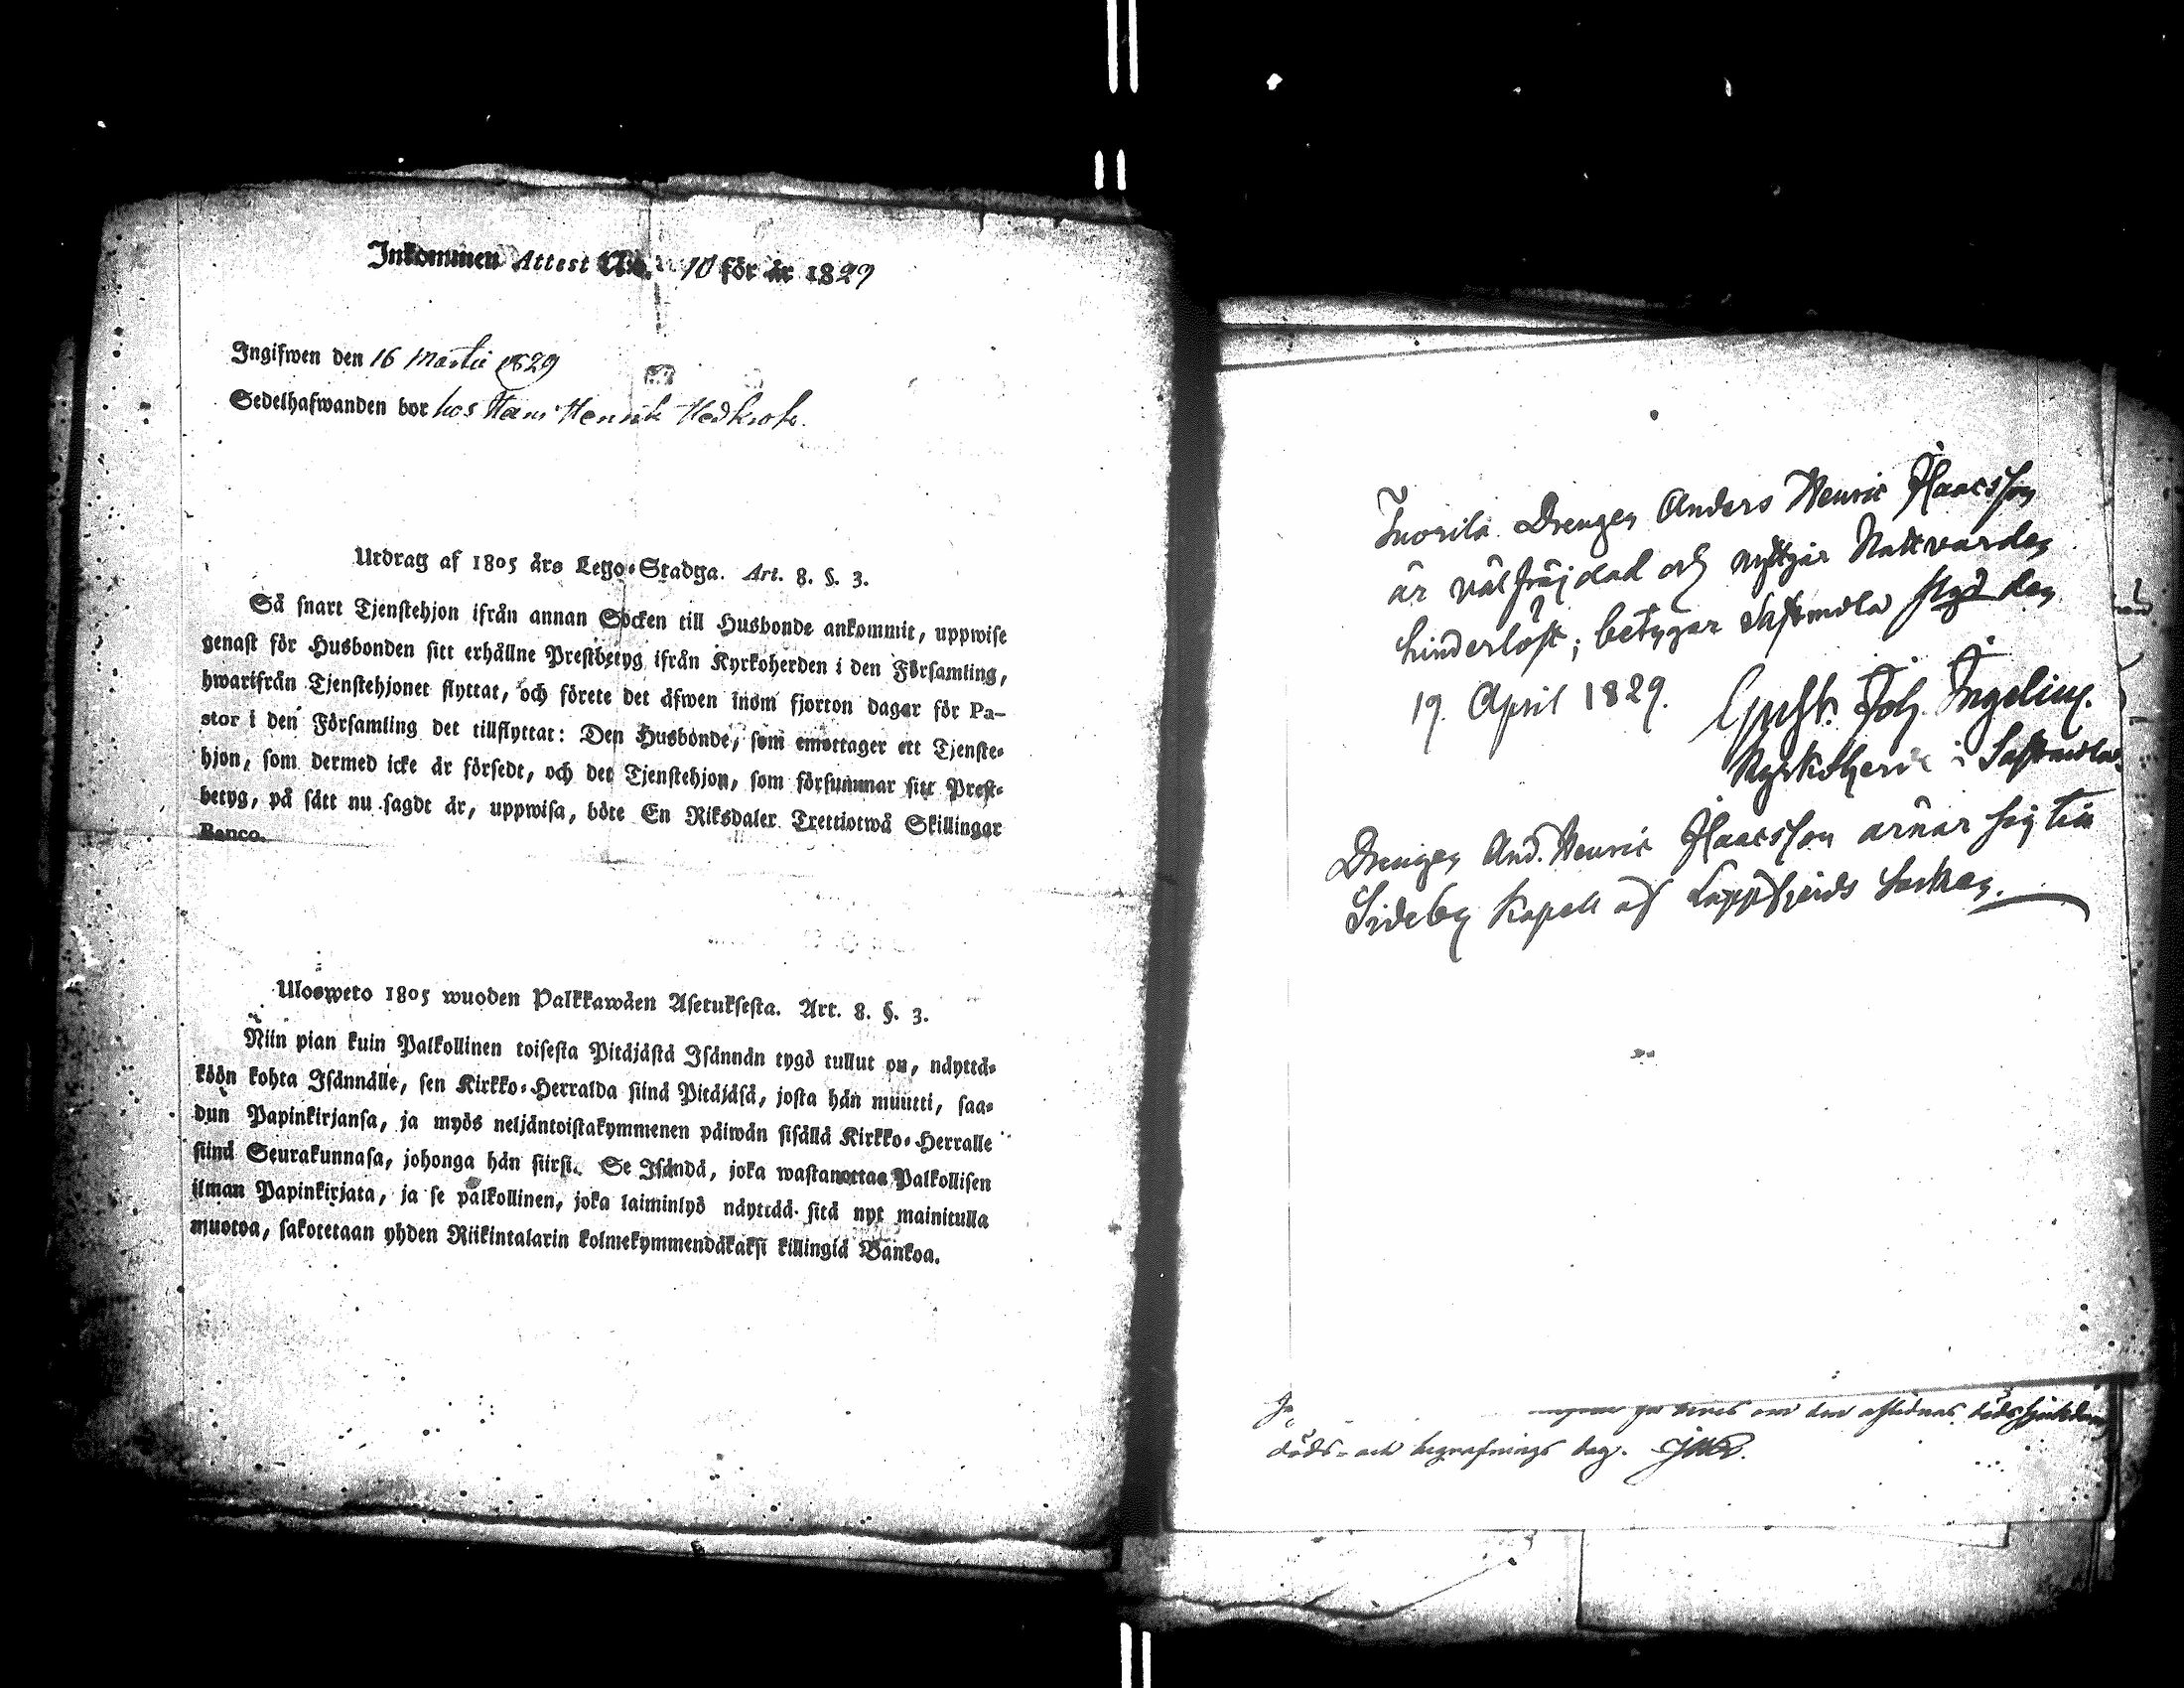 Inkommen Attest No. 10 för år 1829
Ingifwen den 16 Martii 1829
Sedelhafwanden bor hos Hans Henrik
Utdrag af 1805 års Lego-Stadga. Art. 8. §. 3.
Så snart Tjenstehjon ifrån annan Socken till Husbonde ankommit, uppwise
genast för Husbonden sitt erhållne Prestbetyg ifrån Kyrkoherden i den Församling,
hwarifrån Tjenstehjonet flyttat, och förete det äfwen inom fjorton dagar för Pa-
stor i den Församling det tillflyttat: Den Husbonde, som emottager ett Tjenste-
hjon, som dermed icke är försedt, och det Tjenstehjon, som försummar sitt Prest-
betyg, på sätt nu sagdt är, uppwisa, böte En Riksdaler Trettiotwå Skillingar
Banco.
Ulosweto 1805 wuoden Palkkawäen Asetuksesta. Art. 8. §. 3.
Niin pian kuin Palkollinen toisesta Pitäjästä Isännän tygö tullut on, näyttä-
köön kohta Isännälle, sen Kirkko-Herralda siinä Pitäjäsä, josta hän muutti, saa-
dun Papinkirjansa, ja myös neljäntoistakymmenen päiwän sisällä Kirkko-Herralle
siinä Seurakunnasa, johonga hän siirsi. Se Isändä, joka wastanottaa Palkollisen
ilman Papinkirjata, ja se palkollinen, joka laiminlyö näyttää sitä nyt mainitulla
muotoa, sakotetaan yhden Riikintalarin kolmekymmendäkaksi killingiä Bankoa.
Drengen Anders Henric Isaacsson
är välfräjdad och nyttjar Nattvarden
hinderlöst; betygar Sastmola den
19. April 1829. Gust. Joh. Ingelius.
Kyrkoherde i Sastmola.
Drengen And. Henric Isaacsson ärnar sig till
Sideby Kapell af Lappfjerds Socken.
den aflidnas
döds- och begrafnings dag.